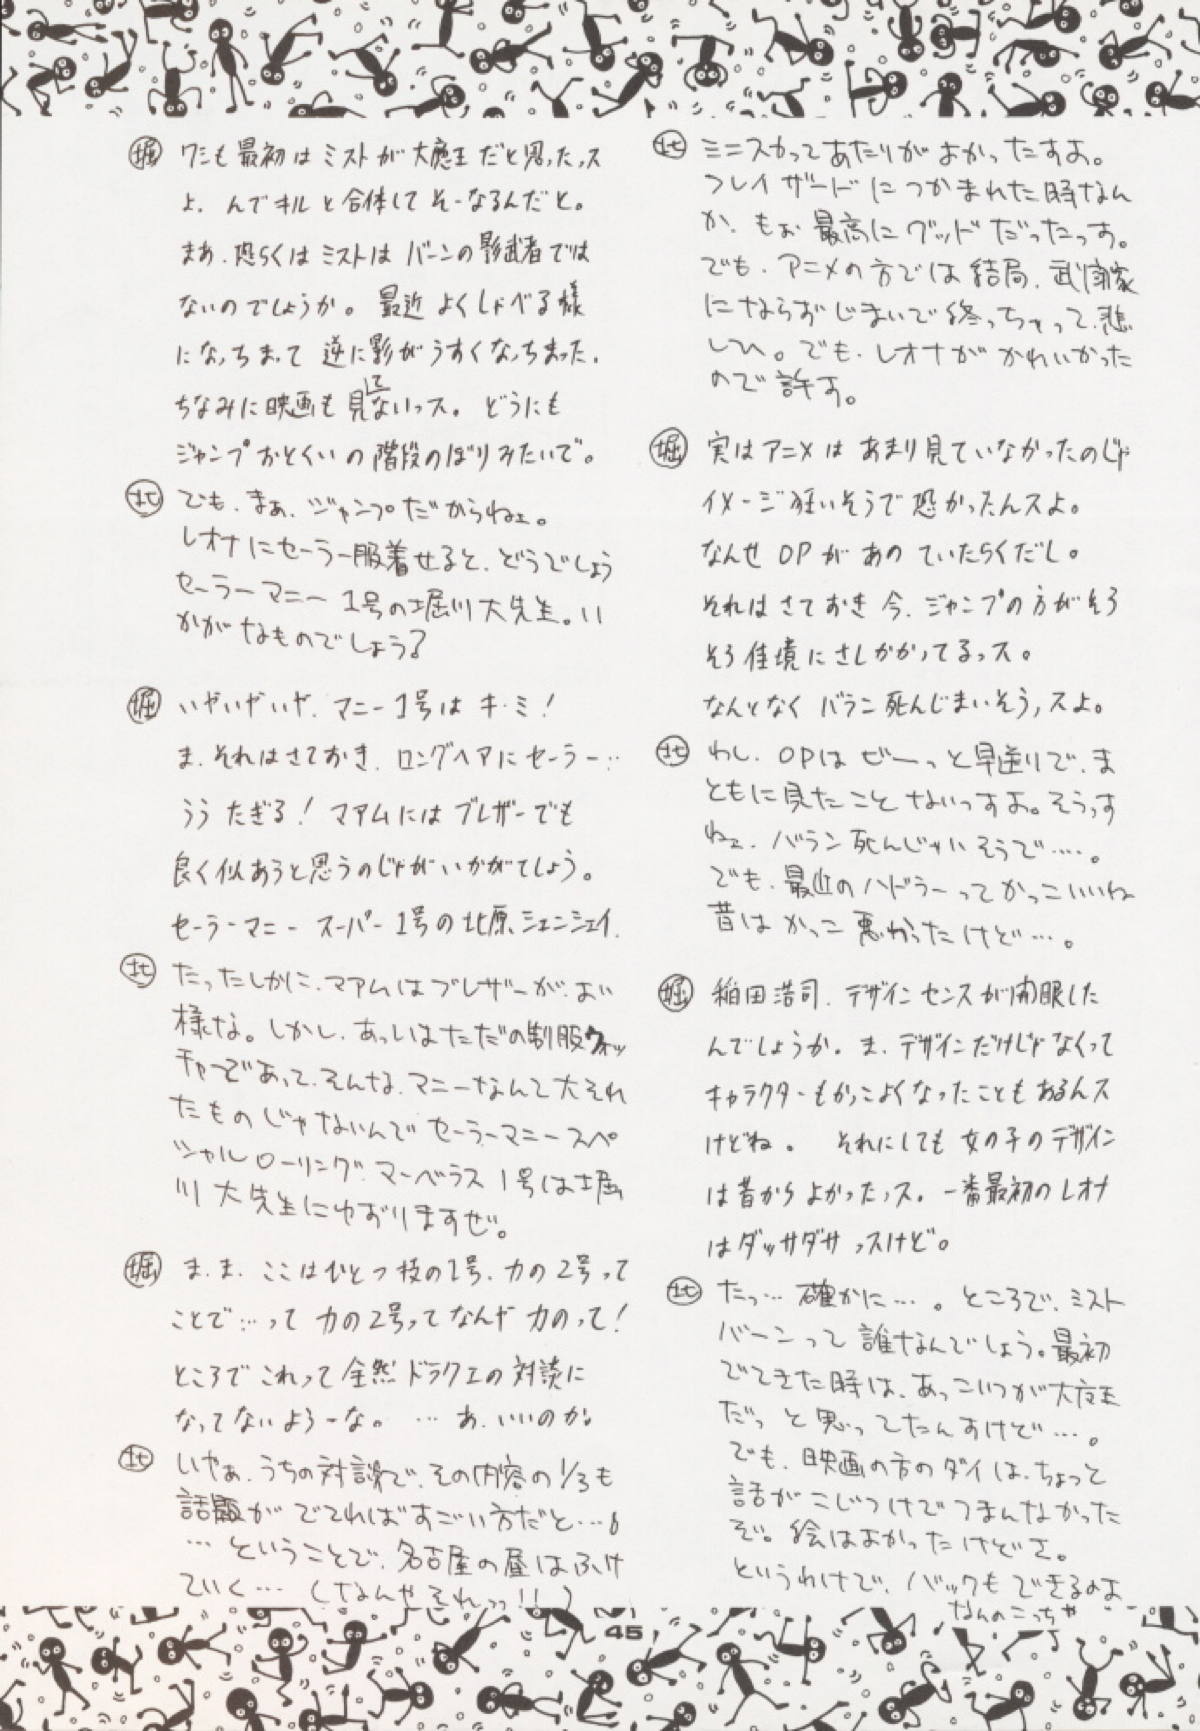 北 ミニスカってあたりがよかったすよ。
フレイザードにつかまれた時なん
か、もお最高にグッドだったっす。
でも、アニメの方では結局、武闘家
にならずじまいで終っちゃって、悲
しひ。でも、レオナがかわいかった
ので許す。
堀 実はアニメはあまり見ていなかったのじゃ
イメージ狂いそうで恐かったんスよ。
なんせOPがあのていたらくだし。
それはさておき今、ジャンプの方がそろ
そろ佳境にさしかかってるっス。
なんとなくバラン死んじまいそうっスよ。
北 わし、OPはビーっと早送りで、ま
ともに見たことないっすよ。そうっす
ねェ、バラン死んじゃいそうで…。
でも、最近のハドラーってかっこいいね
昔はかっこ悪かったけど…。
堀 稲田浩司、デザインセンスが開眼した
んでしょうか。ま、デザインだけじゃなくって
キャラクターもかっこよくなったこともあるんス
けどね。それにしても女の子のデザイン
は昔からよかったっス。一番最初のレオナ
はダッサダサっスけど。
北 たっ…確かに…。ところで、ミスト
バーンって誰なんでしょう。最初
でてきた時は、あっこいつが大魔王
だっと思ってたんすけど…。
でも、映画の方のダイは、ちょっと
話がこじつけでつまんなかった
ぞ。絵はよかったけどさ。
というわけで、バックもできるのよ
なんのこっちゃ
堀 ワシも最初はミストが大魔王だと思ったっス
よ、んでキルと合体してそーなるんだと。
まあ、恐らくはミストはバーンの影武者では
ないのでしょうか。最近よくしゃべる様
になっちまって逆に影がうすくなっちまった。
ちなみに映画も見てないっス。どうにも
ジャンプおとくいの階段のぼりみたいで。
北 でも、まぁ、ジャンプだからねェ。
レオナにセーラー服着せると、どうでしょう
セーラーマニー1号の堀川大先生。い
かがなものでしょう?
堀 いやいやいや、マニー1号はキ・ミ!
ま、それはさておき、ロングヘアにセーラー…
うう たぎる! マアムにはブレザーでも
良く似あうと思うのじゃがいかがでしょう。
セーラーマニースーパー1号の北原シェンシェイ。
北 たったしかに、マアムはブレザーが、よい
様な。しかし、あっしはただの制服ウォッ
チャーであって、そんな、マニーなんて大それ
たものじゃないんでセーラーマニースペ
シャルローリングマーベラス1号は堀
川大先生にゆずりますぜ。
堀 ま、ま、ここはひとつ技の1号、力の2号って
ことで…って力の2号ってなんや力のって!
ところでこれって全然ドラクエの対談に
なってないよーな。…あ、いいのか。
北 いやぁ、うちの対談で、その内容の1/3も
話題がでてればすごい方だと…。
…ということで、名古屋の昼はふけ
ていく…(なんやそれっっ!!)
45